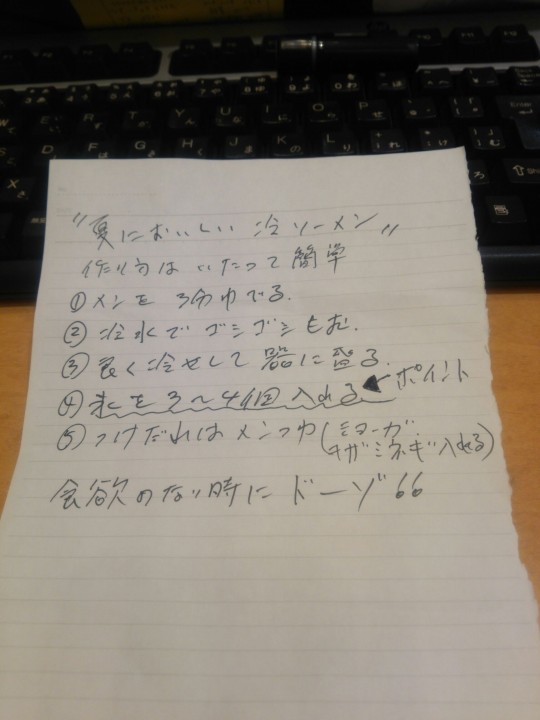 "夏においしい 冷ソーメン"
作り方は いたって簡単
①メンを 3分ゆでる.
②冷水で ゴシゴシもむ.
③良く冷やして 器に盛る.
④氷を3〜4個入れる ←ポイント
⑤つけだれは メンつゆ(ミョーガ.
キザミネギ入れる)
食欲のない時に ドーゾ 66